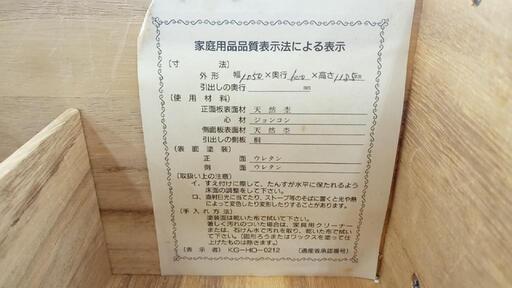 家庭用品品質表示法による表示
〔寸　法〕
外形 幅1050×奥行600×高さ1180mm
引出しの奥行 mm
〔使用材料〕
正面板表面材 天然杢
心材 ジョンコン
側面板表面材 天然杢
引出しの側板 桐
〔表面塗装〕
正面 ウレタン
側面 ウレタン
〔取扱い上の注意〕
イ．すえ付けに際して、たんすが水平に保たれるよう
床面の調整をして下さい。
ロ．直射日光に当てたり、ストーブ等のそばに置くと光や熱
によって変色したり変形したりすることがあります。
〔手入れ方法〕
塗装面は乾いた布で拭いて下さい。
著しく汚れのついた場合は、家具用クリーナー
または、石けん水で汚れを取り、乾いた布で拭いて下
さい。（固形ろうまたはワックスを塗って仕
上げたものは除きます。）
〔表示者〕 KG-HD-0212 （通産省承認番号）